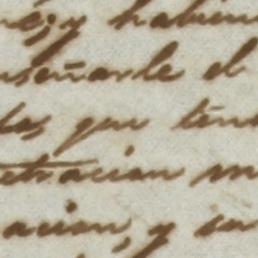 né; y habien
nseñarle el
las que tení
etracion m
acion, y su